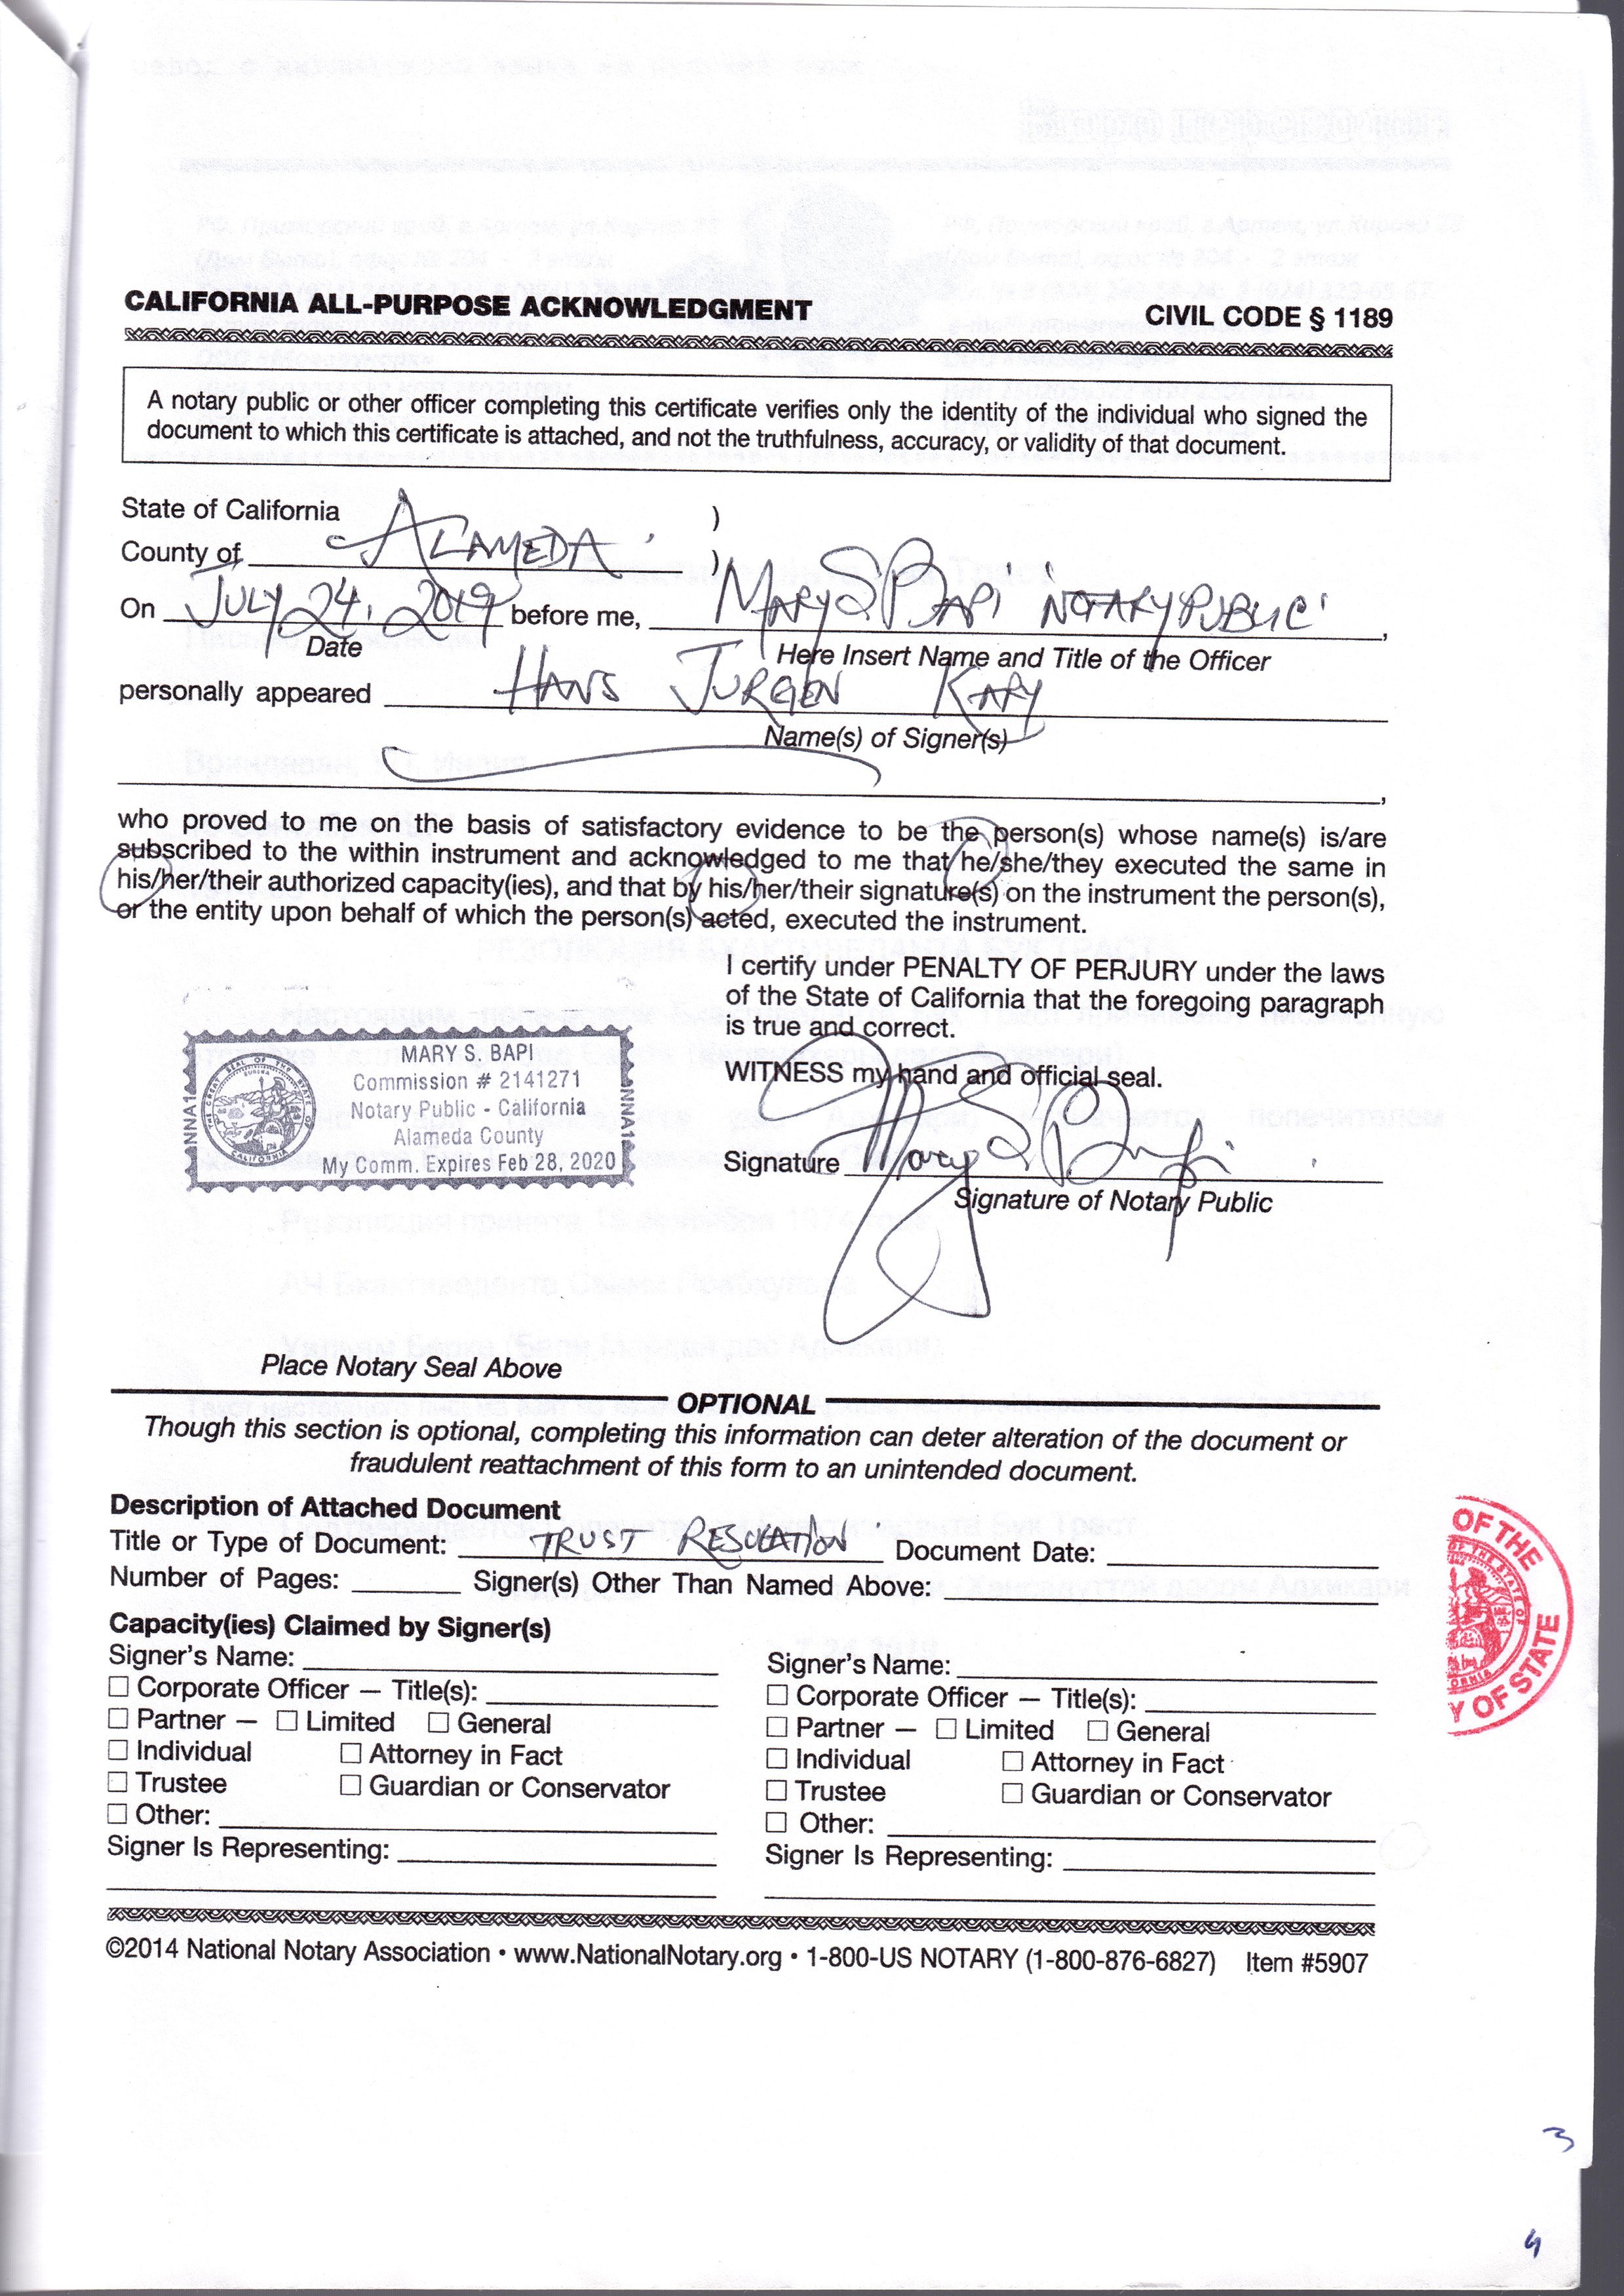 CALIFORNIA ALL-PURPOSE ACKNOWLEDGMENT CIVIL CODE § 1189
A notary public or other officer completing this certificate verifies only the identity of the individual who signed the
document to which this certificate is attached, and not the truthfulness, accuracy, or validity of that document.
State of California )
County of ALAMEDA )
On JULY 24, 2019 before me, MARY S BAPI NOTARY PUBLIC,
Date Here Insert Name and Title of the Officer
personally appeared HANS JURGEN KARY
Name(s) of Signer(s)
,
who proved to me on the basis of satisfactory evidence to be the person(s) whose name(s) is/are
subscribed to the within instrument and acknowledged to me that he/she/they executed the same in
his/her/their authorized capacity(ies), and that by his/her/their signature(s) on the instrument the person(s),
or the entity upon behalf of which the person(s) acted, executed the instrument.
I certify under PENALTY OF PERJURY under the laws
of the State of California that the foregoing paragraph
is true and correct.
WITNESS my hand and official seal.
MARY S. BAPI
Commission # 2141271
Notary Public - California
Alameda County
My Comm. Expires Feb 28, 2020
NNA1
NNA1
Signature Mary S Bapi
Signature of Notary Public
Place Notary Seal Above
OPTIONAL
Though this section is optional, completing this information can deter alteration of the document or
fraudulent reattachment of this form to an unintended document.
Description of Attached Document
Title or Type of Document: TRUST RESOLATION Document Date:
Number of Pages: Signer(s) Other Than Named Above:
Capacity(ies) Claimed by Signer(s)
Signer's Name: Signer's Name:
☐ Corporate Officer — Title(s): ☐ Corporate Officer — Title(s):
☐ Partner — ☐ Limited ☐ General ☐ Partner — ☐ Limited ☐ General
☐ Individual ☐ Attorney in Fact ☐ Individual ☐ Attorney in Fact
☐ Trustee ☐ Guardian or Conservator ☐ Trustee ☐ Guardian or Conservator
☐ Other: ☐ Other:
Signer Is Representing: Signer Is Representing:
OF THE
Y OF STATE
©2014 National Notary Association • www.NationalNotary.org • 1-800-US NOTARY (1-800-876-6827) Item #5907
3
4